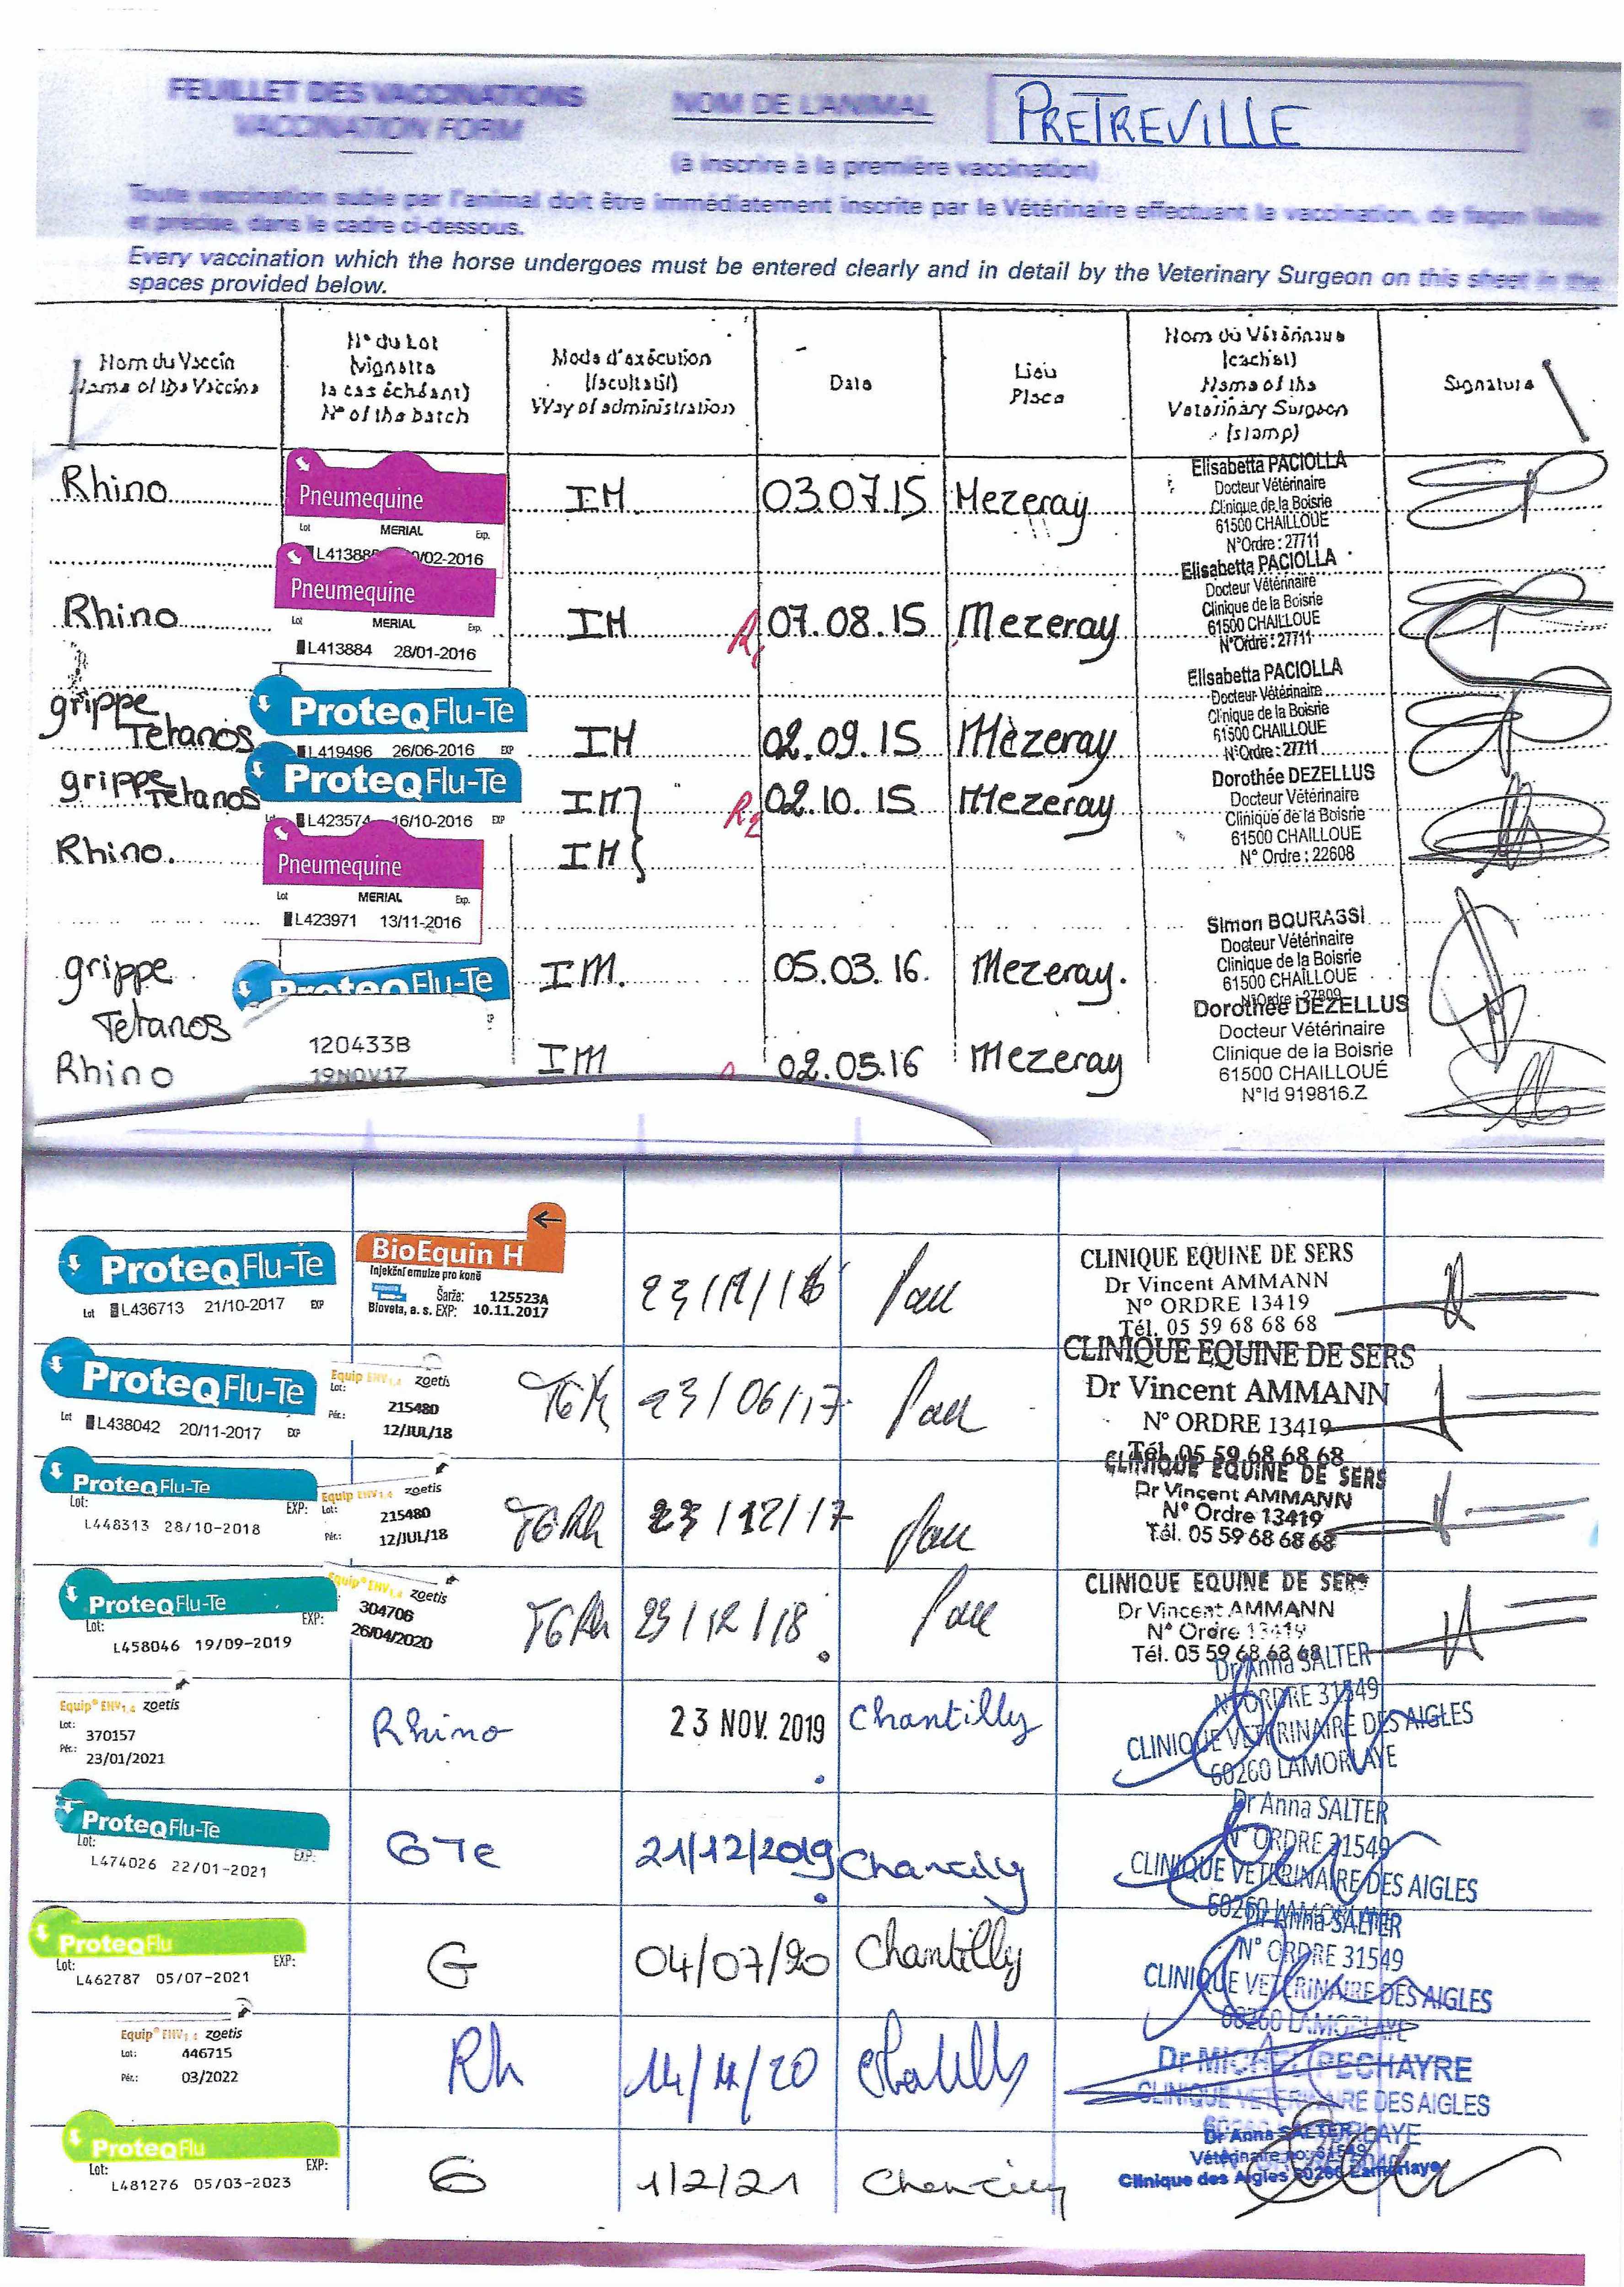 FEUILLET DES VACCINATIONS
VACCINATION FORM
NOM DE L'ANIMAL
PRETREVILLE
(à inscrire à la première vaccination)
Toute vaccination subie par l'animal doit être immédiatement inscrite par le Vétérinaire effectuant la vaccination, de façon lisible
et précise, dans le cadre ci-dessous.
Every vaccination which the horse undergoes must be entered clearly and in detail by the Veterinary Surgeon on this sheet in the
spaces provided below.
Nom du Vaccin
Name of the Vaccine
N° du Lot
(vignette
le cas échéant)
N° of the batch
Mode d'exécution
(facultatif)
Way of administration
Date
Lieu
Place
Nom du Vétérinaire
(cachet)
Name of the
Veterinary Surgeon
(stamp)
Signature
Rhino
Pneumequine
Lot MERIAL Exp.
/02-2016
IM
03.07.15
Mezeray
Elisabetta PACIOLLA
Docteur Vétérinaire
Clinique de la Boisrie
61500 CHAILLOUE
N°Ordre : 27711
Rhino
Pneumequine
Lot MERIAL Exp.
L413884 28/01-2016
IM
R1
07.08.15
Mezeray
Elisabetta PACIOLLA
Docteur Vétérinaire
Clinique de la Boisrie
61500 CHAILLOUE
N°Ordre : 27711
grippe
Tetanos
ProteqFlu-Te
L419496 26/06-2016 EXP
IM
02.09.15
Mèzeray
Elisabetta PACIOLLA
Docteur Vétérinaire
Clinique de la Boisrie
61500 CHAILLOUE
N°Ordre : 27711
grippe
Tetanos
ProteqFlu-Te
L423574 16/10-2016 EXP
IM
R2
02.10.15
Mezeray
Dorothée DEZELLUS
Docteur Vétérinaire
Clinique de la Boisrie
61500 CHAILLOUE
N° Ordre : 22608
Rhino.
Pneumequine
Lot MERIAL Exp.
L423971 13/11-2016
IM
grippe
Tetanos
ProteqFlu-Te
IM.
05.03.16.
Mezeray.
Simon BOURASSI
Docteur Vétérinaire
Clinique de la Boisrie
61500 CHAILLOUE
N°Ordre : 27809
Rhino
120433B
19NOV17
IM
02.05.16
Mezeray
Dorothée DEZELLUS
Docteur Vétérinaire
Clinique de la Boisrie
61500 CHAILLOUÉ
N°Id 919816.Z
ProteqFlu-Te
Lot L436713 21/10-2017 EXP
BioEquin H
Injekční emulze pro koně
Šarže: 125523A
Bioveta, a. s. EXP: 10.11.2017
Pau
CLINIQUE EQUINE DE SERS
Dr Vincent AMMANN
N° ORDRE 13419
Tél. 05 59 68 68 68
ProteqFlu-Te
Lot L438042 20/11-2017 EXP
Equip EHV1,4 zoetis
Lot: 215480
Pér.: 12/JUL/18
23/06/17
Pau
CLINIQUE EQUINE DE SERS
Dr Vincent AMMANN
N° ORDRE 13419
Tél. 05 59 68 68 68
ProteqFlu-Te
Lot: EXP:
L448313 28/10-2018
Equip EHV1,4 zoetis
Lot: 215480
Pér.: 12/JUL/18
TGRh
23/12/17
Pau
CLINIQUE EQUINE DE SERS
Dr Vincent AMMANN
N° Ordre 13419
Tél. 05 59 68 68 68
ProteqFlu-Te
Lot: EXP:
L458046 19/09-2019
Equip® EHV1,4 zoetis
304706
26/04/2020
TGRh
23/12/18
Pau
CLINIQUE EQUINE DE SERS
Dr Vincent AMMANN
N° Ordre 13419
Tél. 05 59 68 68 68
Equip® EHV1,4 zoetis
Lot: 370157
Pér.: 23/01/2021
Rhino
23 NOV. 2019
Chantilly
Dr Anna SALTER
N° ORDRE 31549
CLINIQUE VETERINAIRE DES AIGLES
60260 LAMORLAYE
ProteqFlu-Te
Lot: EXP:
L474026 22/01-2021
GTe
21/12/2019
Chantilly
Dr Anna SALTER
N° ORDRE 31549
CLINIQUE VETERINAIRE DES AIGLES
60260 LAMORLAYE
ProteqFlu
Lot: EXP:
L462787 05/07-2021
G
04/07/20
Chantilly
Dr Anna SALTER
N° ORDRE 31549
CLINIQUE VETERINAIRE DES AIGLES
60260 LAMORLAYE
Equip® EHV1,4 zoetis
Lot: 446715
Pér.: 03/2022
Rh
14/11/20
Dr MICHEL PECHAYRE
CLINIQUE VETERINAIRE DES AIGLES
ProteqFlu
Lot: EXP:
L481276 05/03-2023
G
1/2/21
Chantilly
Dr Anna SALTER
Vétérinaire no: 31549
Clinique des Aigles 60260 Lamorlaye